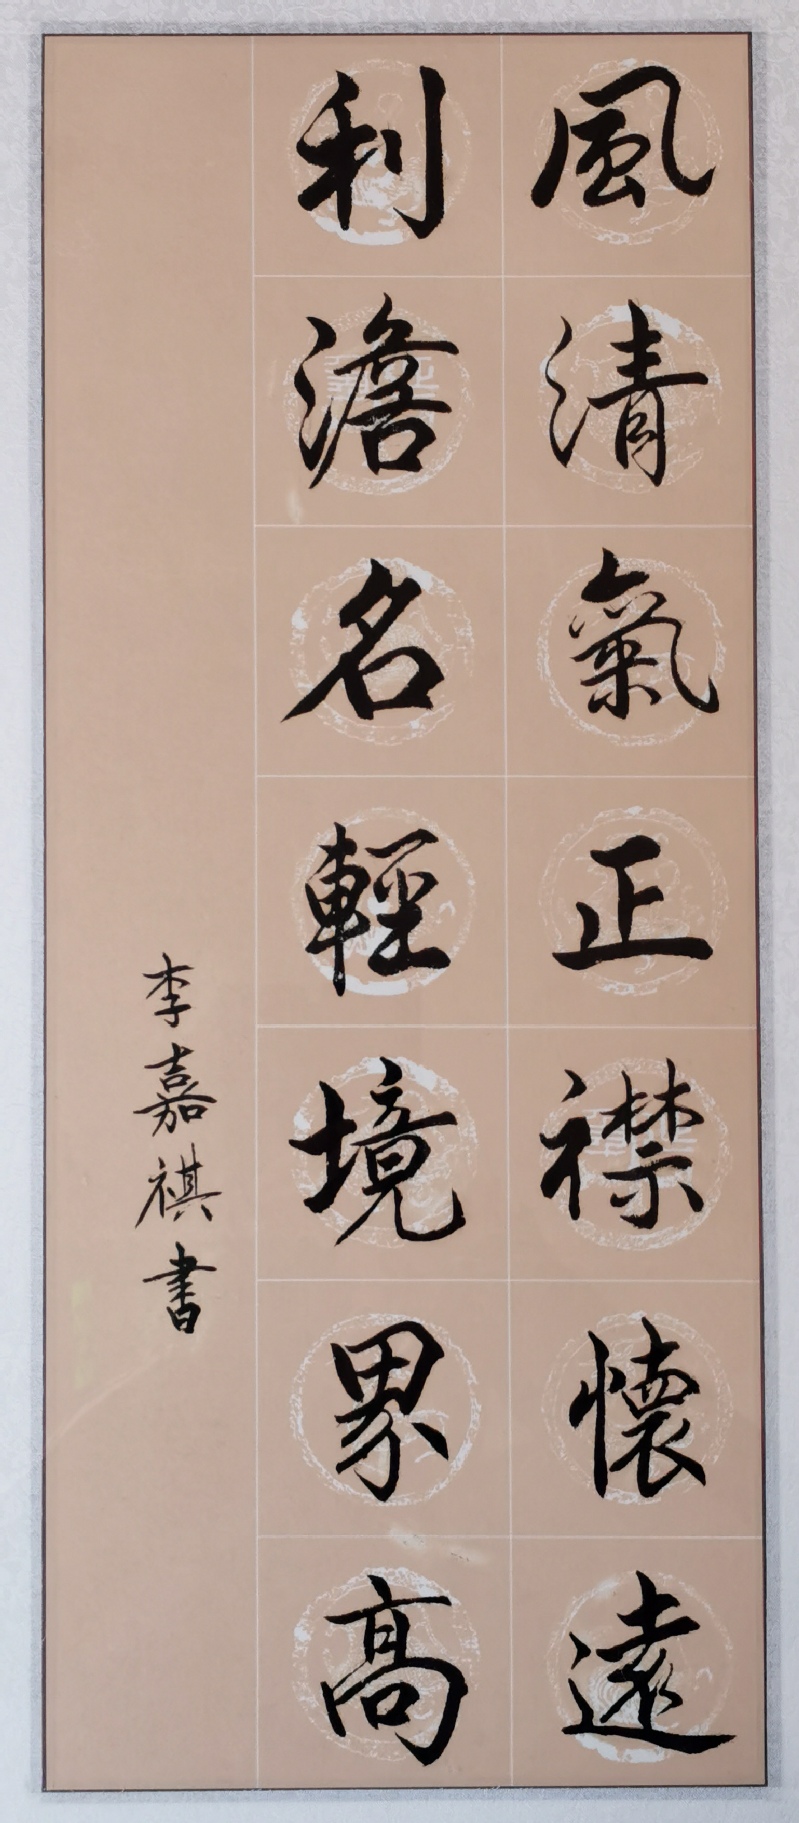 風清氣正襟懷遠
利澹名輕境界高
李嘉祺書